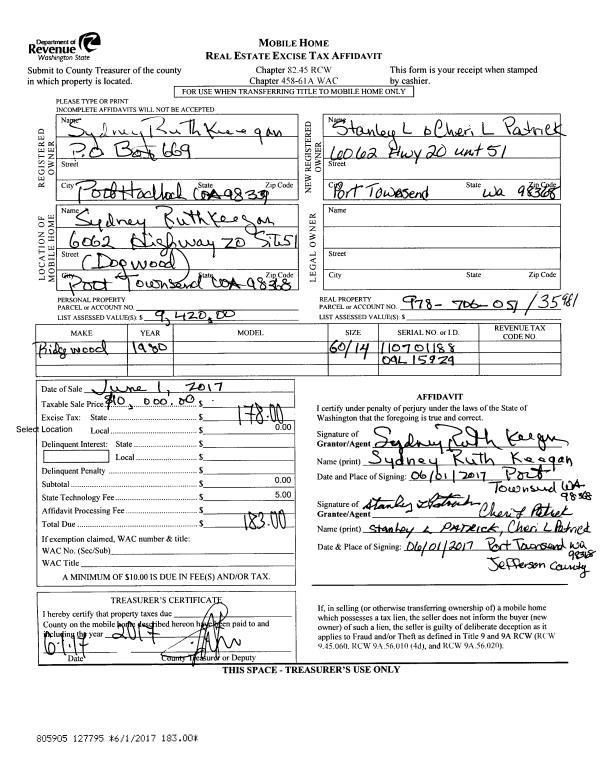 Department of
Revenue
Washington State
MOBILE HOME
REAL ESTATE EXCISE TAX AFFIDAVIT
Submit to County Treasurer of the county
in which property is located.
Chapter 82.45 RCW
Chapter 458-61A WAC
This form is your receipt when stamped
by cashier.
FOR USE WHEN TRANSFERRING TITLE TO MOBILE HOME ONLY
PLEASE TYPE OR PRINT
INCOMPLETE AFFIDAVITS WILL NOT BE ACCEPTED
REGISTERED OWNER
Name Sydney Ruth Keegan
P.O Box 669
Street
City Port Hadlock State WA 98339 Zip Code
NEW REGISTERED OWNER
Name Stanley L & Cheri L Patrick
6062 Hwy 20 unit 51
Street
City Port Townsend State WA Zip Code 98368
LOCATION OF MOBILE HOME
Name Sydney Ruth Keegan
6062 Highway 20 St 51
Street (Dogwood)
City Port Townsend State WA Zip Code 98368
LEGAL OWNER
Name
Street
City State Zip Code
PERSONAL PROPERTY
PARCEL or ACCOUNT NO.
LIST ASSESSED VALUE(S): $ 9,420.00
REAL PROPERTY
PARCEL or ACCOUNT NO. 978-706-051/35981
LIST ASSESSED VALUE(S): $
MAKE YEAR MODEL SIZE SERIAL NO. or I.D. REVENUE TAX CODE NO.
Ridgwood 1980 60/14 110701188
09L 15929
Date of Sale June 1, 2017
Taxable Sale Price $10,000.00 $
Excise Tax: State $ 178.00
Select Location Local $ 0.00
Delinquent Interest: State $
Local $
Delinquent Penalty $
Subtotal $ 0.00
State Technology Fee $ 5.00
Affidavit Processing Fee $
Total Due $ 183.00
If exemption claimed, WAC number & title:
WAC No. (Sec/Sub)
WAC Title
A MINIMUM OF $10.00 IS DUE IN FEE(S) AND/OR TAX.
AFFIDAVIT
I certify under penalty of perjury under the laws of the State of
Washington that the foregoing is true and correct.
Signature of
Grantor/Agent Sydney Ruth Keegan
Name (print) Sydney Ruth Keegan
Date and Place of Signing: 06/01/2017 Port
Townsend WA
98368
Signature of
Grantee/Agent Stanley L Patrick Cheri L Patrick
Name (print) Stanley L PATRICK, Cheri L Patrick
Date & Place of Signing: 06/01/2017 Port Townsend Wa
98368
Jefferson County
TREASURER'S CERTIFICATE
I hereby certify that property taxes due
County on the mobile home described hereon have been paid to and
including the year 2017
6-1-17
Date County Treasurer or Deputy
If, in selling (or otherwise transferring ownership of) a mobile home
which possesses a tax lien, the seller does not inform the buyer (new
owner) of such a lien, the seller is guilty of deliberate deception as it
applies to Fraud and/or Theft as defined in Title 9 and 9A RCW (RCW
9.45.060, RCW 9A.56.010 (4d), and RCW 9A.56.020).
THIS SPACE - TREASURER'S USE ONLY
805905 127795 *6/1/2017 183.00*